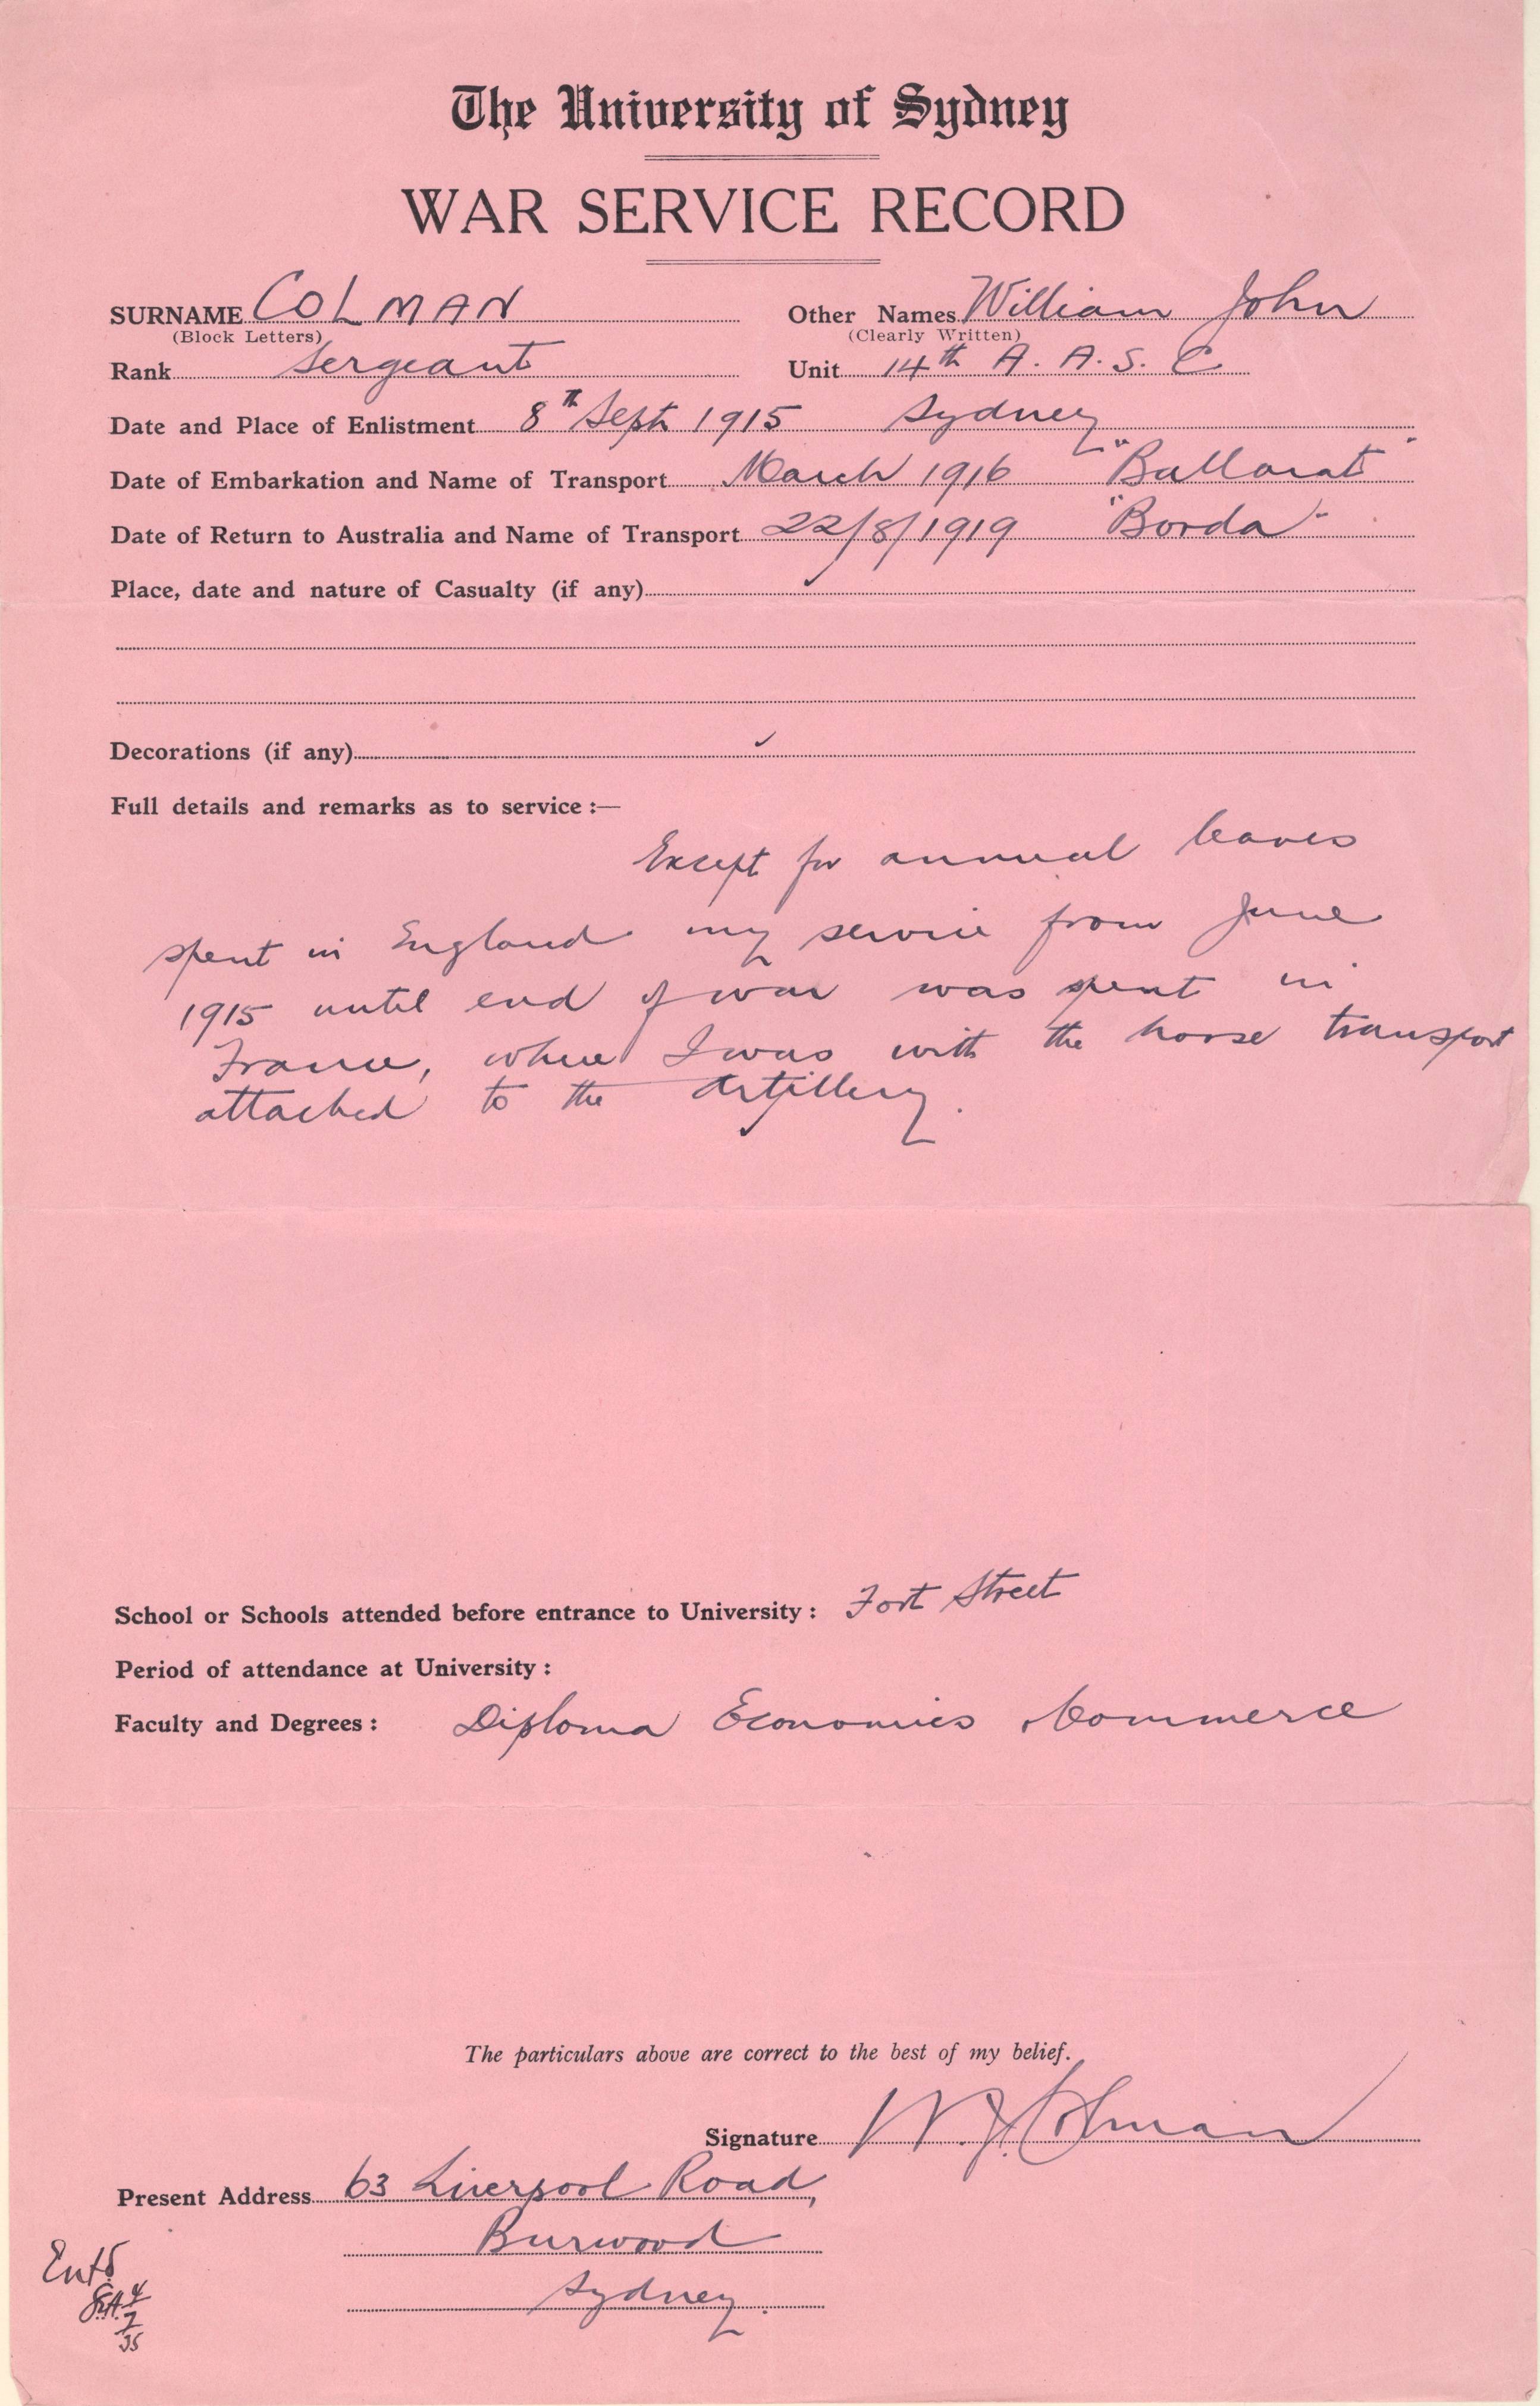 The University of Sydney
WAR SERVICE RECORD
SURNAME COLMAN Other Names William John
(Block Letters) (Clearly Written)
Rank Sergeant Unit 14th A. A. S. C.
Date and Place of Enlistment 8th Sept 1915 Sydney
Date of Embarkation and Name of Transport March 1916 "Ballarat"
Date of Return to Australia and Name of Transport 22/8/1919 "Borda"
Place, date and nature of Casualty (if any)
Decorations (if any)
Full details and remarks as to service :—
Except for annual leaves
spent in England my service from June
1915 until end of war was spent in
France, where I was with the horse transport
attached to the Artillery.
School or Schools attended before entrance to University : Fort Street
Period of attendance at University :
Faculty and Degrees : Diploma Economics Commerce
The particulars above are correct to the best of my belief.
Signature W. J. Colman
Present Address 63 Liverpool Road,
Burwood
Sydney.
Entd
4
7
35